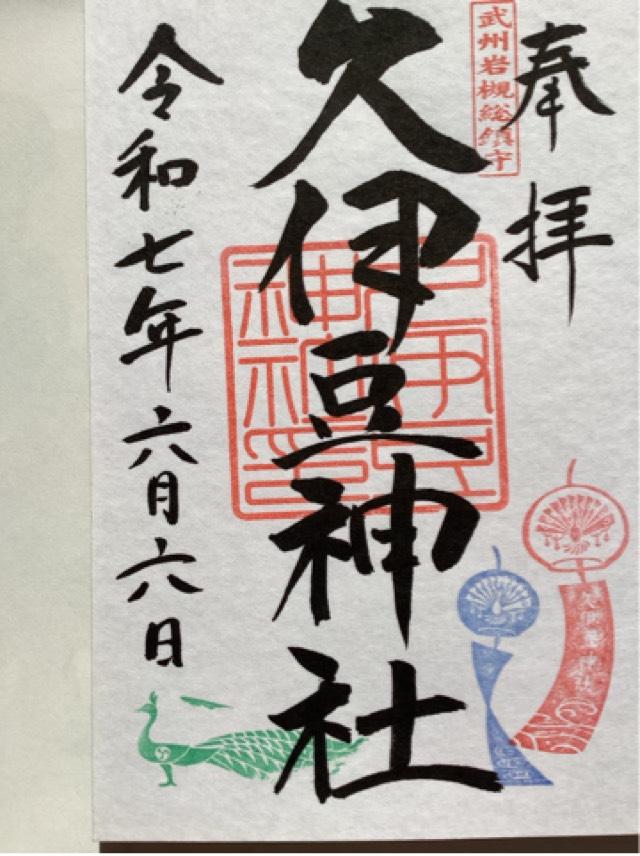 奉拝
武州岩槻総鎮守
久伊豆神社
令和七年六月六日
久伊豆神社